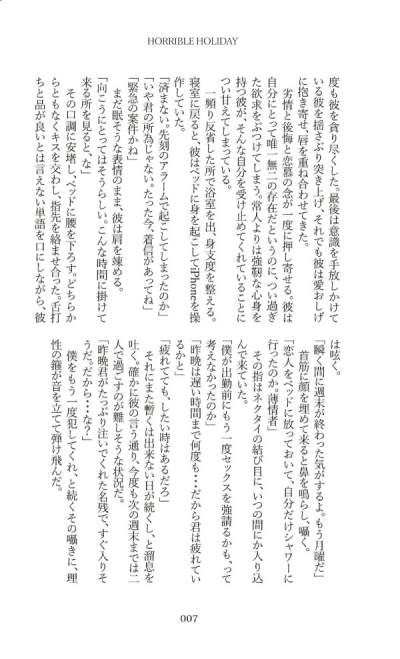 HORRIBLE HOLIDAY
度も彼を貪り尽くした。最後は意識を手放しかけて
いる彼を揺さぶり突き上げ、それでも彼は愛おしげ
に抱き寄せ、唇を重ね合わせてきた。
　劣情と後悔と恋慕の念が一度に押し寄せる。彼は
自分にとって唯一無二の存在だというのに、つい過ぎ
た欲求をぶつけてしまう。常人よりは強靭な心身を
持つ彼が、そんな自分を受け止めてくれていることに
つい甘えてしまっている。
　一頻り反省した所で浴室を出、身支度を整える。
寝室に戻ると、彼はベッドに身を起こしてiPhoneを操
作していた。
「済まない。先刻のアラームで起こしてしまったのか」
「いや君の所為じゃない。たった今、着信があってね」
「緊急の案件かね」
　まだ眠そうな表情のまま、彼は肩を竦める。
「向こうにとってはそうらしい。こんな時間に掛けて
来る所を見ると、な」
　その口調に安堵し、ベッドに腰を下ろす。どちらか
らともなくキスを交わし、指先を絡ませ合った。舌打
ちと品が良いとは言えない単語を口にしながら、彼
は呟く。
「瞬く間に週末が終わった気がするよ。もう月曜だ」
　首筋に顔を埋めて来ると鼻を鳴らし、囁く。
「恋人をベッドに放っておいて、自分だけシャワーに
行ったのか。薄情者」
　その指はネクタイの結び目に、いつの間にか入り込
んで来ていた。
「僕が出勤前にもう一度セックスを強請るかも、って
考えなかったのか」
「昨晩は遅い時間まで何度も・・・だから君は疲れてい
るかと」
「疲れてても、したい時はあるだろ」
　それにまた暫くは出来ない日が続くし、と溜息を
吐く。確かに彼の言う通り、今度も次の週末までは二
人で過ごすのが難しそうな状況だ。
「昨晩君がたっぷり注いでくれた名残で、すぐ入りそ
うだ。だから・・・な?」
　僕をもう一度犯してくれ、と続くその囁きに、理
性の箍が音を立てて弾け飛んだ。
007